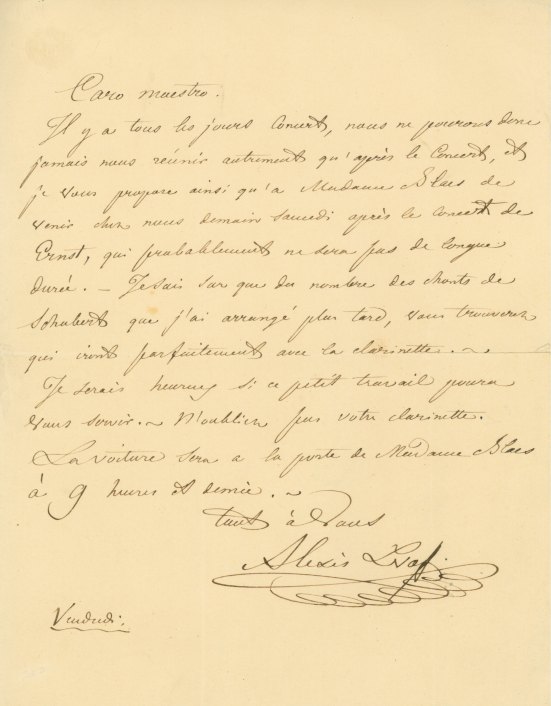 Caro maestro.
Il y a tous les jours Concert, nous ne pourons donc
jamais nous réunir autrement qu'après le Concert, et
je vous propose ainsi qu'a Madame Blaes de
venir chez nous demain samedi après le concert de
Ernst, qui probablement ne sera pas de longue
durée. – Je sais sur que du nombre des chants de
Schubert que j'ai arrangé plus tard, vous trouverez
qui iront parfaitement avec la clarinette. ~
Je serais heureux si ce petit travail poura
vous servir. ~ N'oubliez pas votre clarinette.
La voiture sera a la porte de Madame Blaes
à 9 heures et demie. ~
tout à Vous
Alexis Lvoff.
Vendredi.